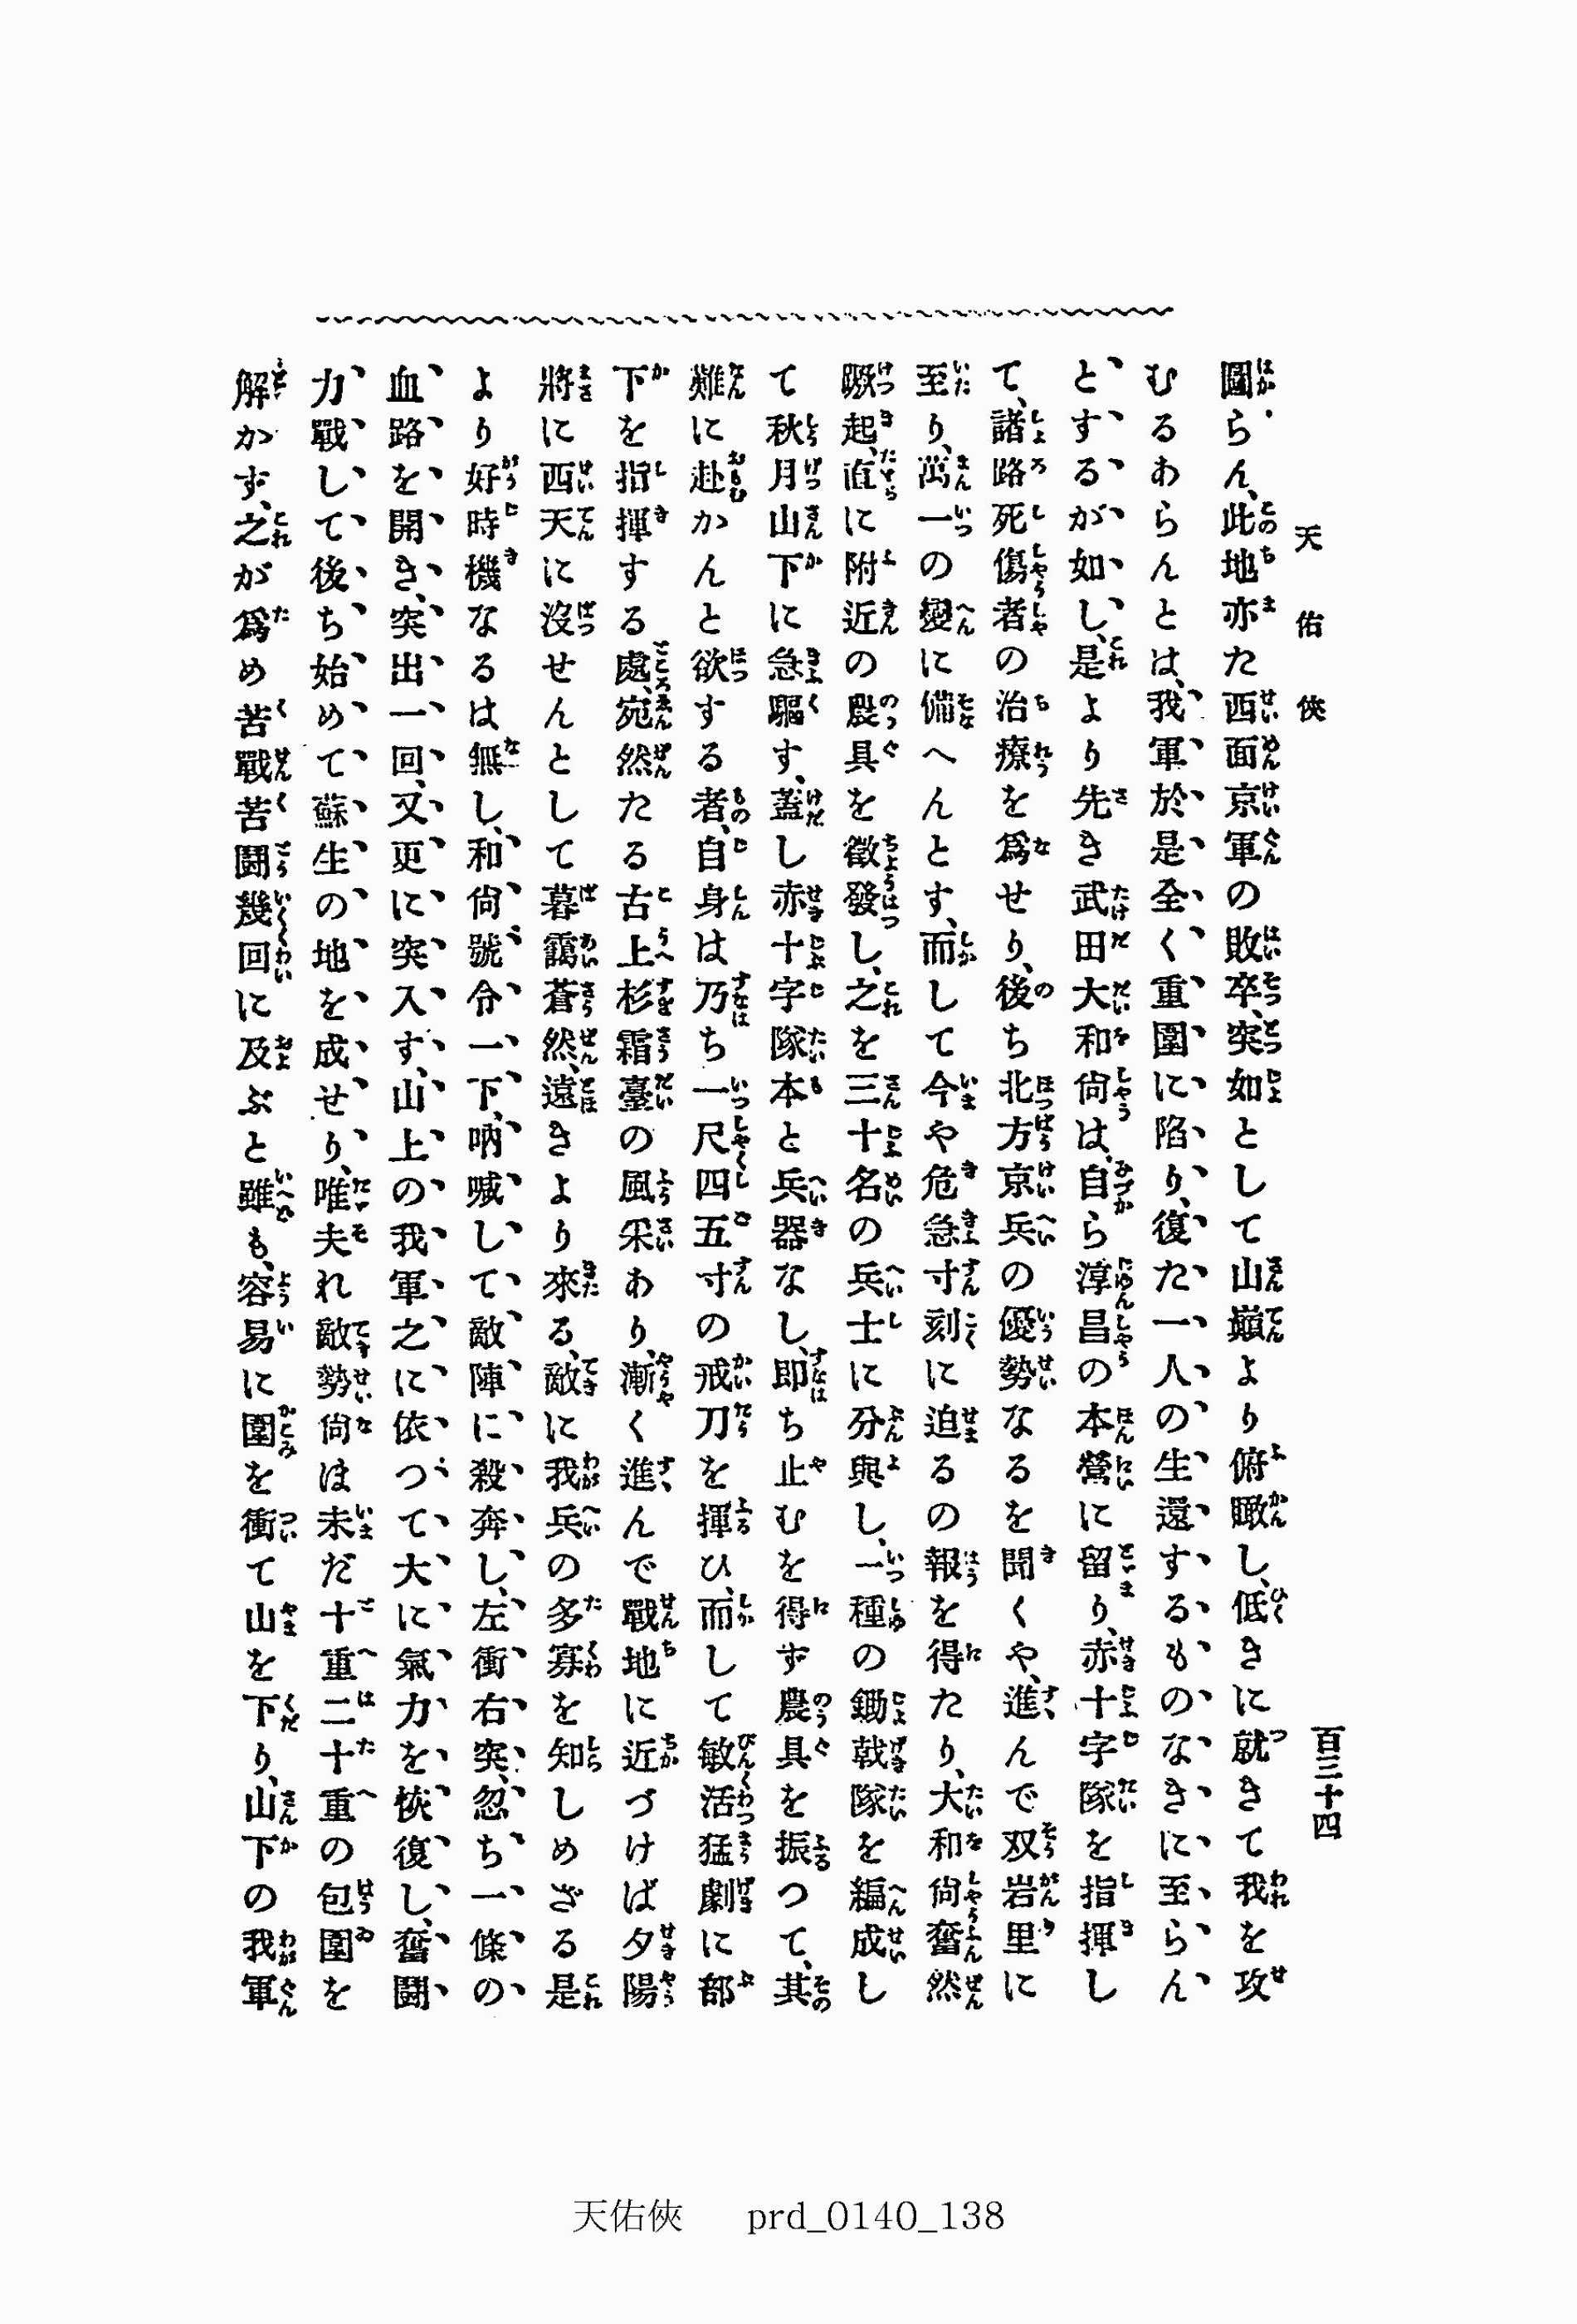 天佑俠
百三十四
圖らん、此地亦た西面京軍の敗卒、突如として山巓より俯瞰し、低きに就きて我を攻
むるあらんとは、我軍於是全く重圍に陷り、復た一人の生還するものなきに至らん
とするが如し、是より先き武田大和尙は、自ら淳昌の本營に留り、赤十字隊を指揮し
て、諸路死傷者の治療を爲せり、後ち北方京兵の優勢なるを聞くや、進んで双岩里に
至り、萬一の變に備へんとす、而して今や危急寸刻に迫るの報を得たり、大和尙奮然
蹶起、直に附近の農具を徵發し、之を三十名の兵士に分與し、一種の鋤戟隊を編成し
て秋月山下に急驅す、蓋し赤十字隊本と兵器なし、即ち止むを得ず農具を振つて、其
難に赴かんと欲する者、自身は乃ち一尺四五寸の戒刀を揮ひ、而して敏活猛劇に部
下を指揮する處、宛然たる古上杉霜臺の風采あり、漸く進んで戰地に近づけば夕陽
將に西天に沒せんとして暮靄蒼然、遠きより來る、敵に我兵の多寡を知しめざる是
より好時機なるは無し、和尙號令一下、吶喊して敵陣に殺奔し、左衝右突、忽ち一條の
血路を開き、突出一回、又更に突入す、山上の我軍之に依つて大に氣力を恢復し、奮鬪
力戰して後ち始めて蘇生の地を成せり、唯夫れ敵勢尙ほ未だ十重二十重の包圍を
解かず、之が爲め苦戰苦鬪幾回に及ぶと雖も、容易に圍を衝て山を下り、山下の我軍
天佑俠 prd_0140_138